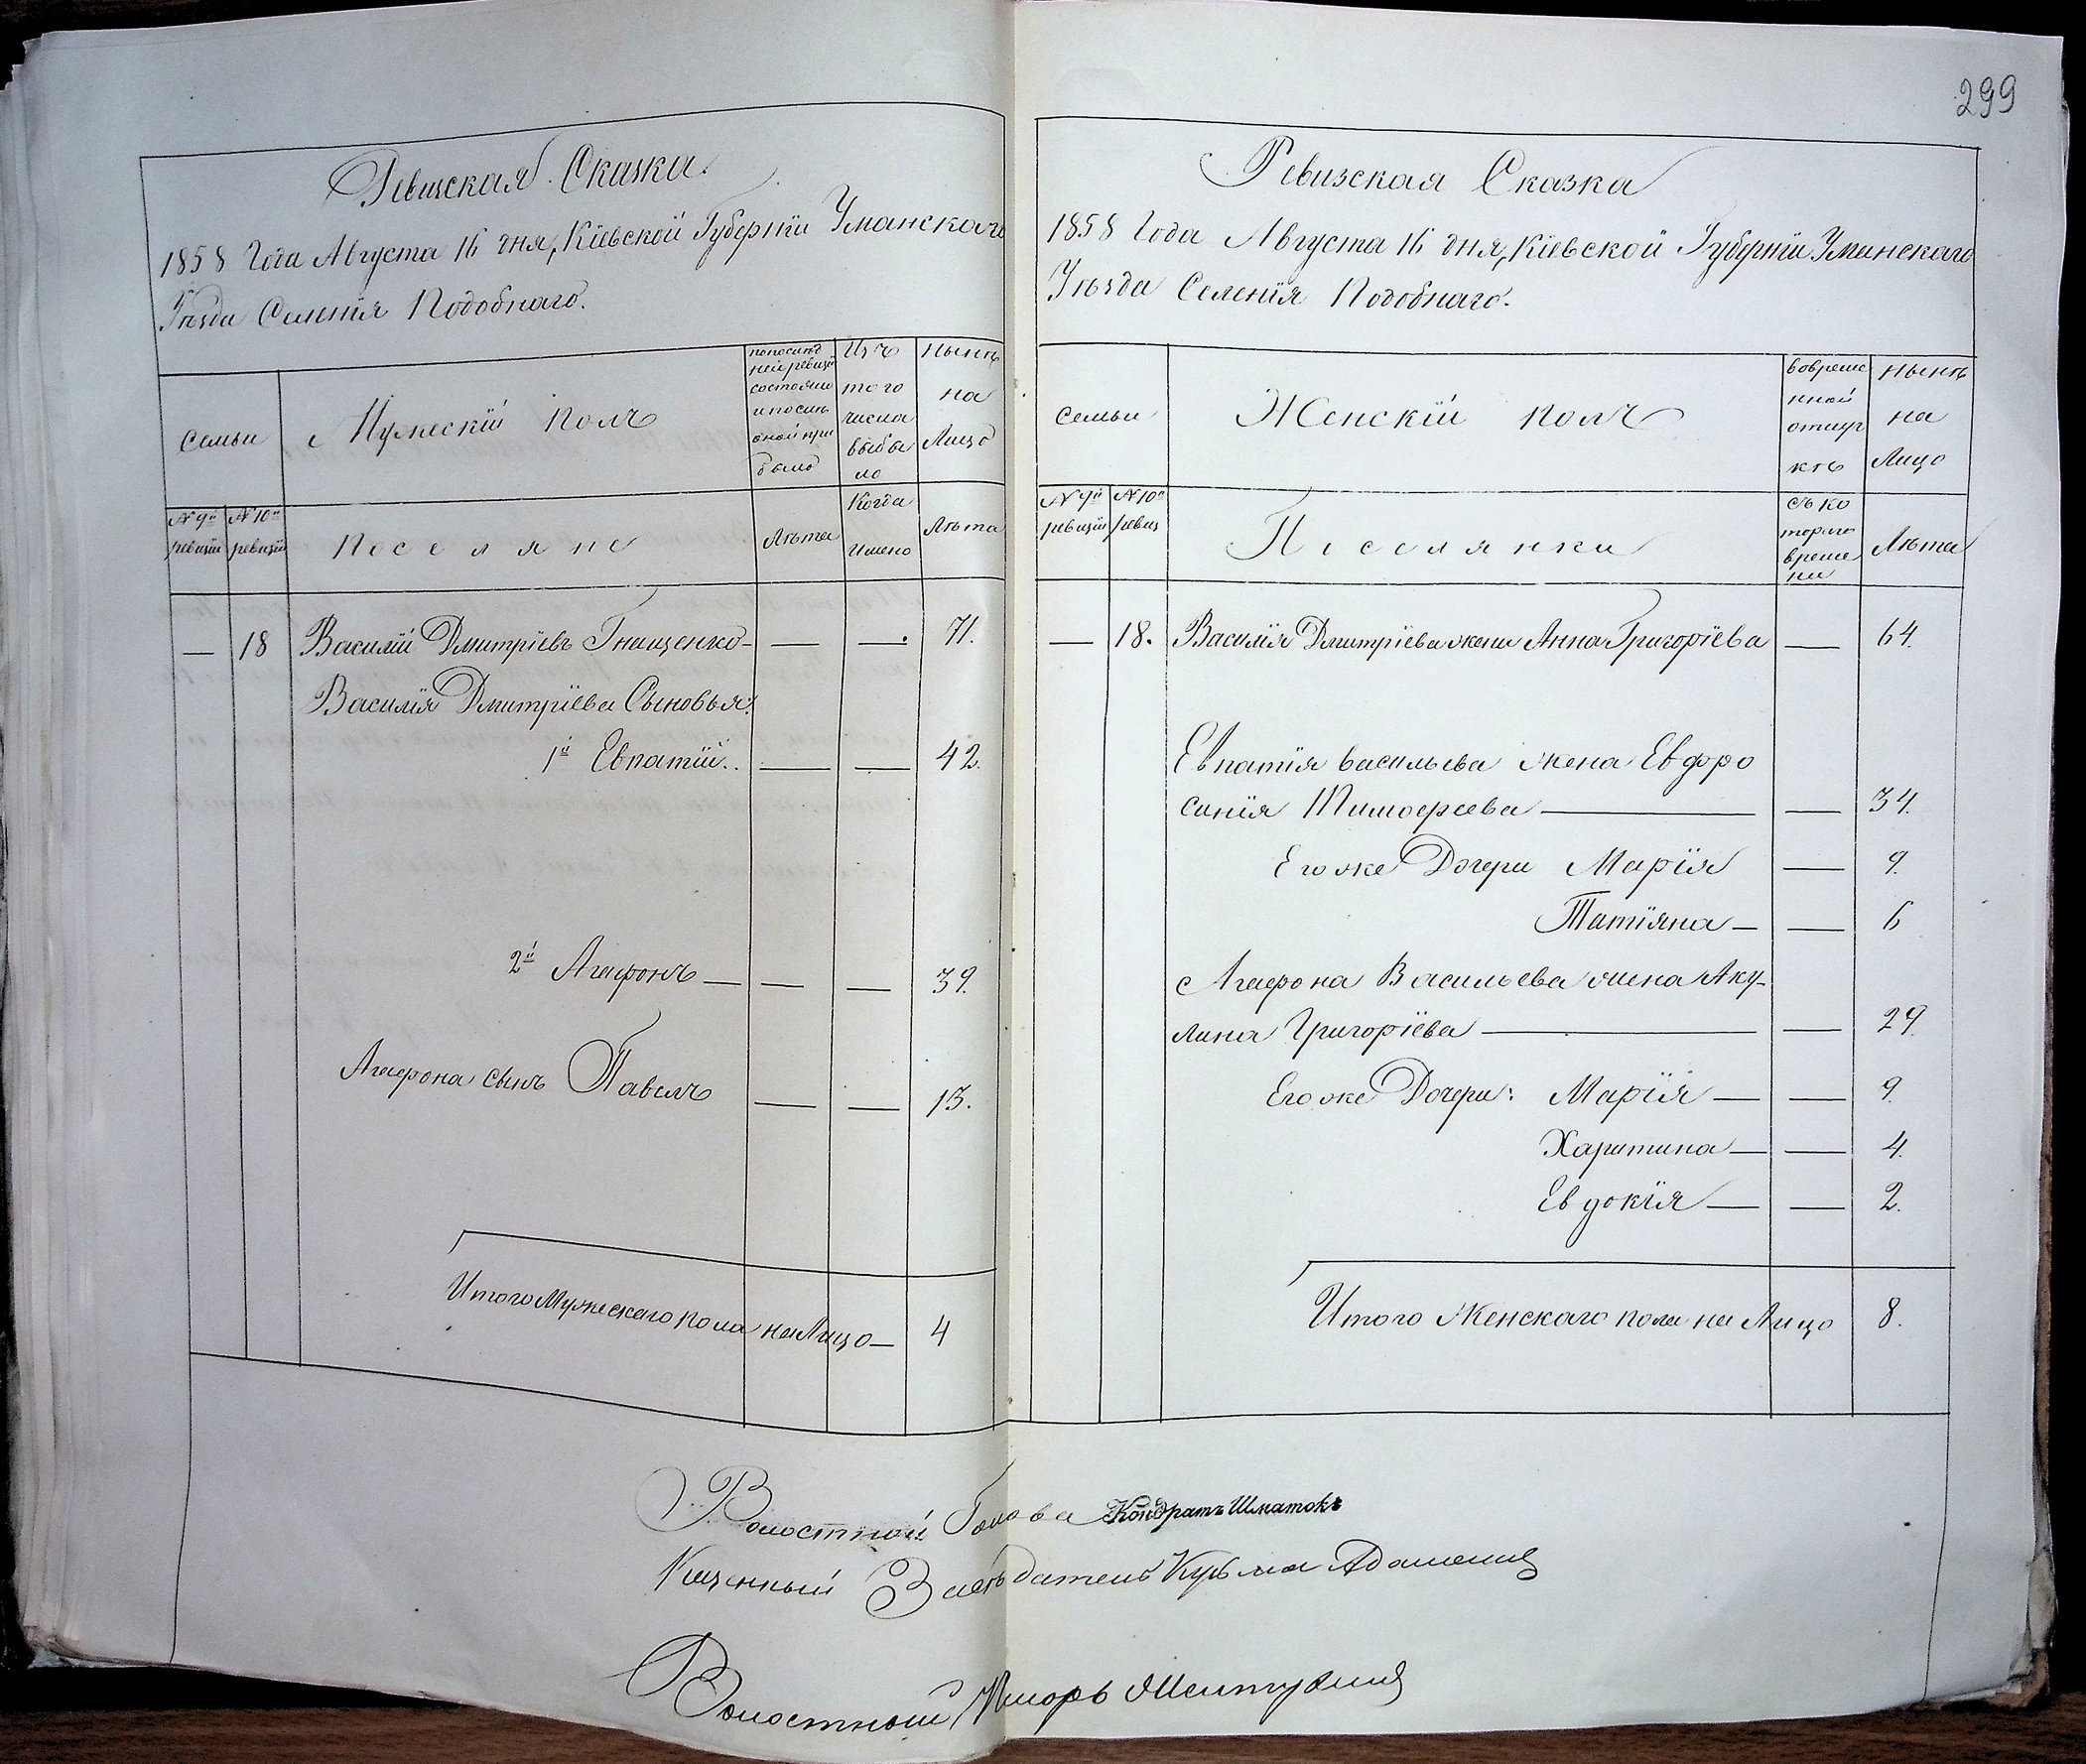 299
Ревизская Сказка.
1858 Года Августа 16 дня, Кіевской Губерніи Уманскаго
Уѣзда Селенія Подобнаго.
Семьи
Мужескій полъ
по послѣд
ней ревизіи
состояли
и послѣ
оной при
было
Изъ
того
числа
выбы
ло
Нынѣ
на
Лицо
№ 9й
ревизіи
№ 10й
ревизіи
Поселяне
Лѣта
Когда
имено
Лѣта
— 18 Василій Дмитріевъ Гнищенко — — —. 71.
Василія Дмитріева Сыновья:
1й Евпатій.. — — 42.
2й Агафонъ — — — 39.
Агафона сынъ Павелъ — — 13.
Итого Мужескаго пола на Лицо — 4
Ревизская Сказка
1858 Года Августа 16 дня, Кіевской Губерніи Уманскаго
Уѣзда Селенія Подобнаго.
Семьи
Женскій полъ
во време
нной
отлуч
кѣ
Нынѣ
на
Лицо
№ 9й
ревизіи
№ 10й
ревиз
Поселянки
Съ ко
тораго
време
ни
Лѣта
— 18. Василія Дмитріева жена Анна Григоріева — 64.
Евпатія васильева жена Евфро
синія Тимофеева — — 34.
Его же Дочери Марія — 9.
Татіяна — — 6
Агафона Васильева жена Аку-
лина Григоріева — — 29.
Его же Дочери: Марія — — 9.
Харитина — — 4.
Евдокія — — 2.
Итого Женскаго пола на Лицо 8.
Волостной Голова Кондратъ Шматокъ
Казенный Засѣдатель Кузьма
Волостный Писорь